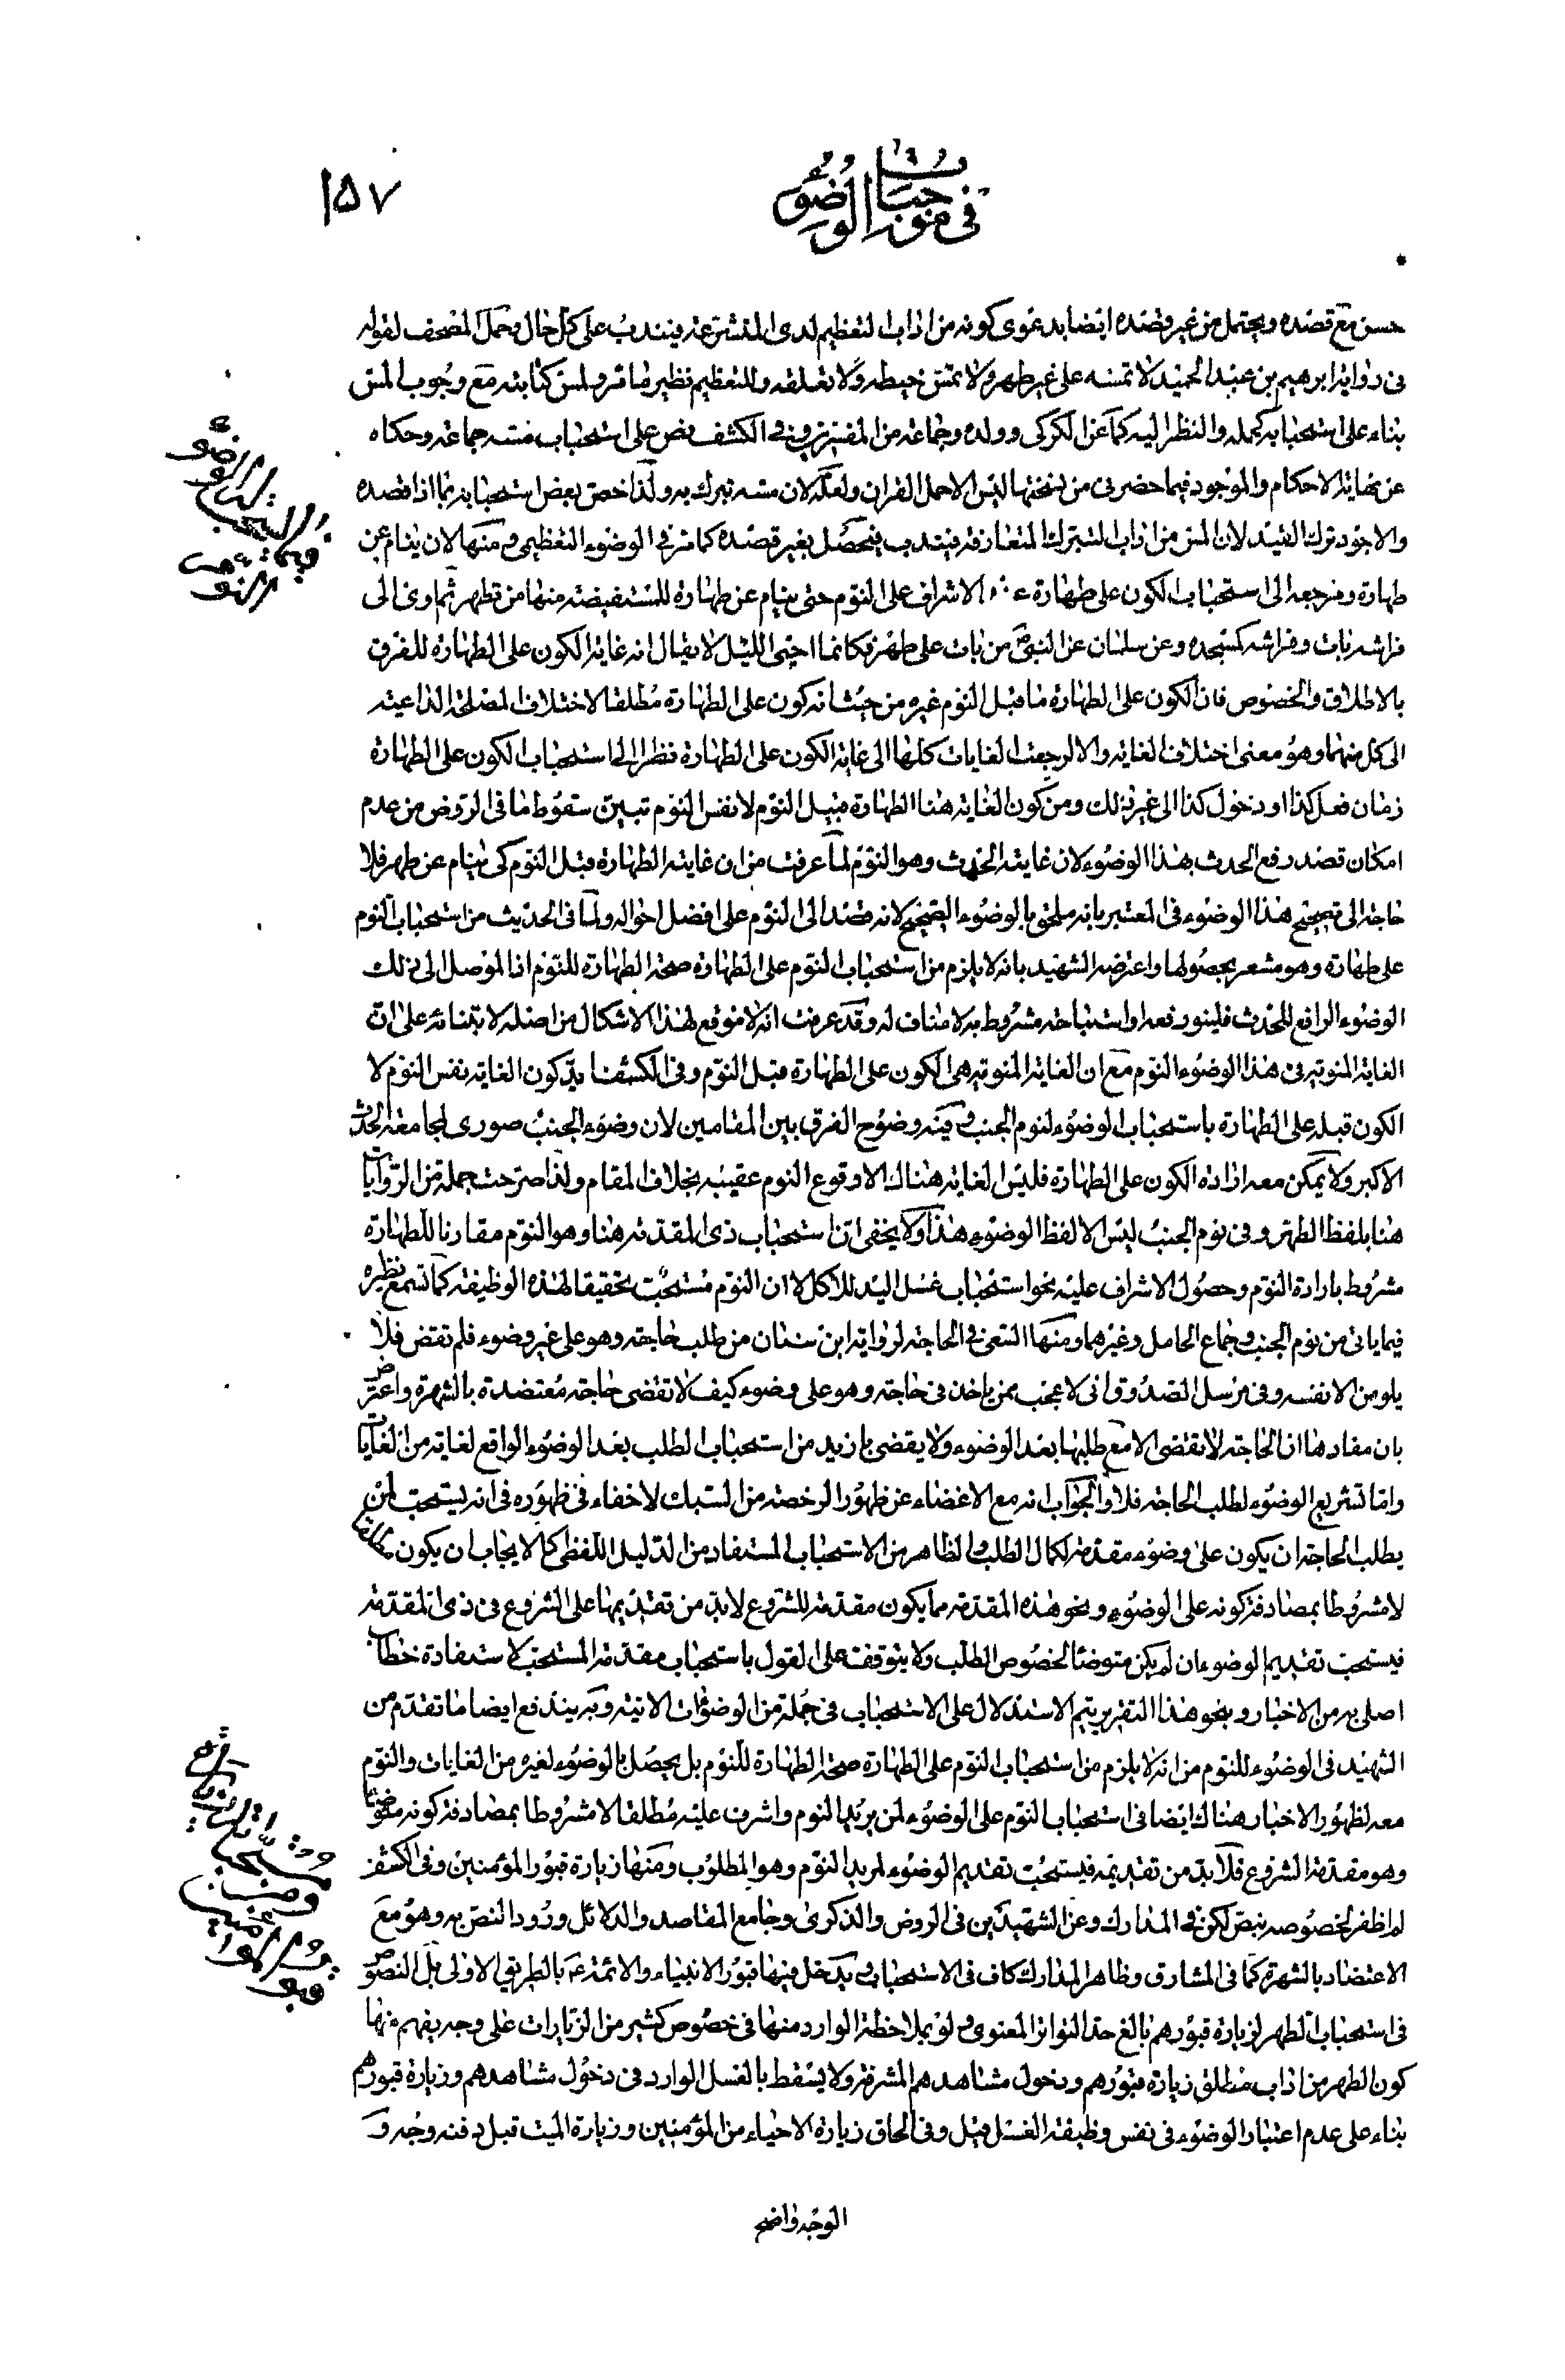 ١٥٧
فى موجبات الوضوء
حسن مع قصده ويحتمل من غير قصده ايضا بدعوى كونه من اداب التعظيم لدى المتشرعة فيندب على كل حال وحمل المصحف لقوله
فى رواية ابرهيم بن عبد الحميد لا تمسه على غير طهر ولا تمس خيطه ولا تعلقه وللتعظيم نظير ما مر ولمس كتابته مع وجوب المس
بناء على استحبابه كحمله والنظر اليه كما عن الكركى وولده وجماعة من المفسرين وفى الكشف نص على استحباب مسه جماعة وحكاه
عن نهاية الاحكام والموجود فيما حضرنى من نسختها ليس الا حمل القران ولعله لان مسه تبرك به ولذا خص بعض استحبابه بما اذا قصده
والاجود ترك القيد لان المس من اداب التبرك المتعارفة فيتدب فيحصل بغير قصده كما مر فى الوضوء التعظيمى ومنها لان ينام عن
طهارة ومرجعه الى استحباب الكون على طهارة عند الاشراف على النوم حتى ينام عن طهارة للمستفيضة منها من تطهر ثم اوى الى
فراشه بات وفراشه كمسجده وعن سلمان عن النبى ص من بات على طهر فكانما احيى الليل لا يقال انه غاية الكون على الطهارة للفرق
بالاطلاق والخصوص فان الكون على الطهارة ما قبل النوم غيره من حيث انه كون على الطهارة مطلقا لاختلاف المصلحة الداعية
الى كل منهما وهو معنى اختلاف الغاية والا لرجعت الغايات كلها الى غاية الكون على الطهارة نظرا الى استحباب الكون على الطهارة
زمان فعل كذا او دخول كذا الى غير ذلك ومن كون الغاية هنا الطهارة قبيل النوم لا نفس النوم تبين سقوط ما فى الروض من عدم
امكان قصد رفع الحدث بهذا الوضوء لان غايته الحدث وهو النوم لما عرفت من ان غايته الطهارة قبل النوم كى ينام عن طهر فلا
حاجة الى تصحيح هذا الوضوء فى المعتبر بانه ملحق بالوضوء الصحيح لانه قصد الى النوم على افضل احواله ولما فى الحديث من استحباب النوم
على طهارة وهو مشعر بحصولها واعترضه الشهيد بانه لا يلزم من استحباب النوم على الطهارة صحة الطهارة للنوم اذ الموصل الى ذلك
الوضوء الرافع للحدث فلينو رفعه او استباحة مشروط به لا مناف له وقد عرفت انه لا موقع لهذا الاشكال من اصله لابتنائه على ان
الغاية المنوية فى هذا الوضوء النوم مع ان الغاية المنوية هى الكون على الطهارة قبل النوم وفى الكشف ايد كون الغاية نفس النوم لا
الكون قبله على الطهارة باستحباب الوضوء لنوم الجنب وفيه وضوح الفرق بين المقامين لان وضوء الجنب صورى لمجامعة الحدث
الاكبر ولا يمكن معه ارادة الكون على الطهارة فليس الغاية هناك الا وقوع النوم عقيبه بخلاف المقام ولذا صرحت جملة من الروايات
هنا بلفظ الطهر وفى نوم الجنب ليس الا لفظ الوضوء هذا ولا يخفى ان استحباب ذى المقدمة هنا وهو النوم مقارنا للطهارة
مشروط بارادة النوم وحصول الاشراف عليه نحو استحباب غسل اليد للاكل لا ان النوم مستحب تحقيقا لهذه الوظيفة كما تسمع نظيره
فيما ياتى من نوم الجنب وجماع الحامل وغيرهما ومنها السعى فى الحاجة لرواية ابن سنان من طلب حاجة وهو على غير وضوء فلم تقض فلا
يلومن الا نفسه وفى مرسل الصدوق انى لاعجب ممن ياخذ فى حاجة وهو على وضوء كيف لا تقضى حاجته معتضدة بالشهرة واعترض
بان مفادها ان الحاجة لا تقضى الا مع طلبها بعد الوضوء ولا يقضى بازيد من استحباب الطلب بعد الوضوء الواقع لغاية من الغايات
واما تشريع الوضوء لطلب الحاجة فلا والجواب انه مع الاغضاء عن ظهور الرخصة من السبك لا خفاء فى ظهوره فى انه يستحب لمن
يطلب الحاجة ان يكون على وضوء مقدمة لكمال الطلب والظاهر من الاستحباب المستفاد من الدليل اللفظى كالايجاب ان يكون مطلقا
لا مشروطا بمصادفة كونه على الوضوء ونحو هذه المقدمة مما يكون مقدمة للشروع لابد من تقديمها على الشروع فى ذى المقدمة
فيستحب تقديم الوضوء ان لم يكن متوضئا لخصوص الطلب ولا يتوقف على القول باستحباب مقدمة المستحب لاستفادة خطاب
اصلى به من الاخبار وبنحو هذا التقرير يتم الاستدلال على الاستحباب فى جملة من الوضوءات الاتية وبه يندفع ايضا ما تقدم من
الشهيد فى الوضوء للنوم من انه لا يلزم من استحباب النوم على الطهارة صحة الطهارة للنوم بل يحصل بالوضوء لغيره من الغايات والنوم
معه لظهور الاخبار هناك ايضا فى استحباب النوم على الوضوء لمن يريد النوم واشرف عليه مطلقا لا مشروطا بمصادفة كونه متوضئا
وهو مقدمة الشروع فلابد من تقديمه فيستحب تقديم الوضوء لمريد النوم وهو المطلوب ومنها زيارة قبور المؤمنين وفى الكشف
لم اظفر لخصوصه بنص لكن فى المدارك وعن الشهيدين فى الروض والذكرى وجامع المقاصد والدلائل ورود النص به وهو مع
الاعتضاد بالشهرة كما فى المشارق وظاهر المدارك كاف فى الاستحباب ويدخل فيها قبور الانبياء والائمة ع بالطريق الاولى بل النصوص
فى استحباب الطهر لزيارة قبورهم بالغ حد التواتر المعنوى ولو بملاحظة الوارد منها فى خصوص كثير من الزيارات على وجه يفهم منها
كون الطهر من اداب مطلق زيارة قبورهم ودخول مشاهدهم المشرفة ولا يسقط بالغسل الوارد فى دخول مشاهدهم وزيارة قبورهم
بناء على عدم اعتبار الوضوء فى نفس وظيفة الغسل قبل وفى الحاق زيارة الاحياء من المؤمنين وزيارة الميت قبل دفنه وجه و
الوجه واضح